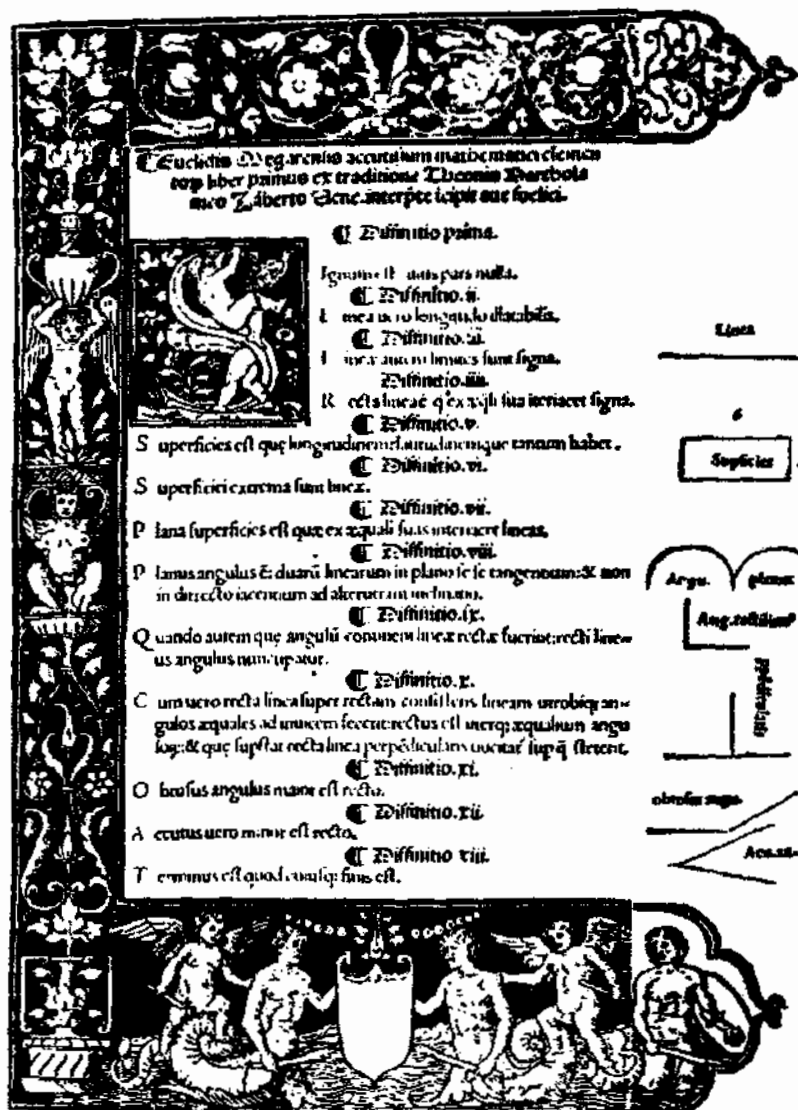 ¶Euclidis Megarensis
liber primus ex traditione Theonis Bartholo
meo Zāberto Uene. interpte
¶ Diffinitio prima.
Ignum est cuius pars nulla.
¶ Diffinitio.ii.
L inea uero longitudo illatabilis.
¶ Diffinitio.iii.
L ineæ autem limites sunt signa.
Diffinitio.iiii.
R ecta lineaé q ex æqli sua iteriacet signa.
¶ Diffinitio.v.
S uperficies est que longitudinem latitudinemque tantum habet.
¶ Diffinitio.vi.
S uperficiei extrema sunt lineæ.
¶ Diffinitio.vii.
P lana superficies est quæ ex æquali suas interiacet lineas.
¶ Diffinitio.viii.
P lanus angulus é: duarū linearum in plano se se tangentium: & non
in directo iacentium ad alterutram inclinatio.
¶ Diffinitio.ix.
Q uando autem que angulū continent lineæ rectæ fuerint: recti line-
us angulus nuncupatur.
¶ Diffinitio.x.
C um uero recta linea super rectam consistens lineam utrobiq; an-
gulos æquales ad inuicem fecerit: rectus est uterq; æqualium angu
& que supstat recta linea perpēdicularis uocitat sup q̄ steterit.
¶ Diffinitio.xi.
O btusus angulus maior est recto.
¶ Diffinitio.xii
A cutus uero minor est recto.
¶ Diffinitio xiii.
T erminus est quod cuiusq; finis est.
Linea
Supficies
Angu. planus
Ang.
obtusus angu.
Acu.